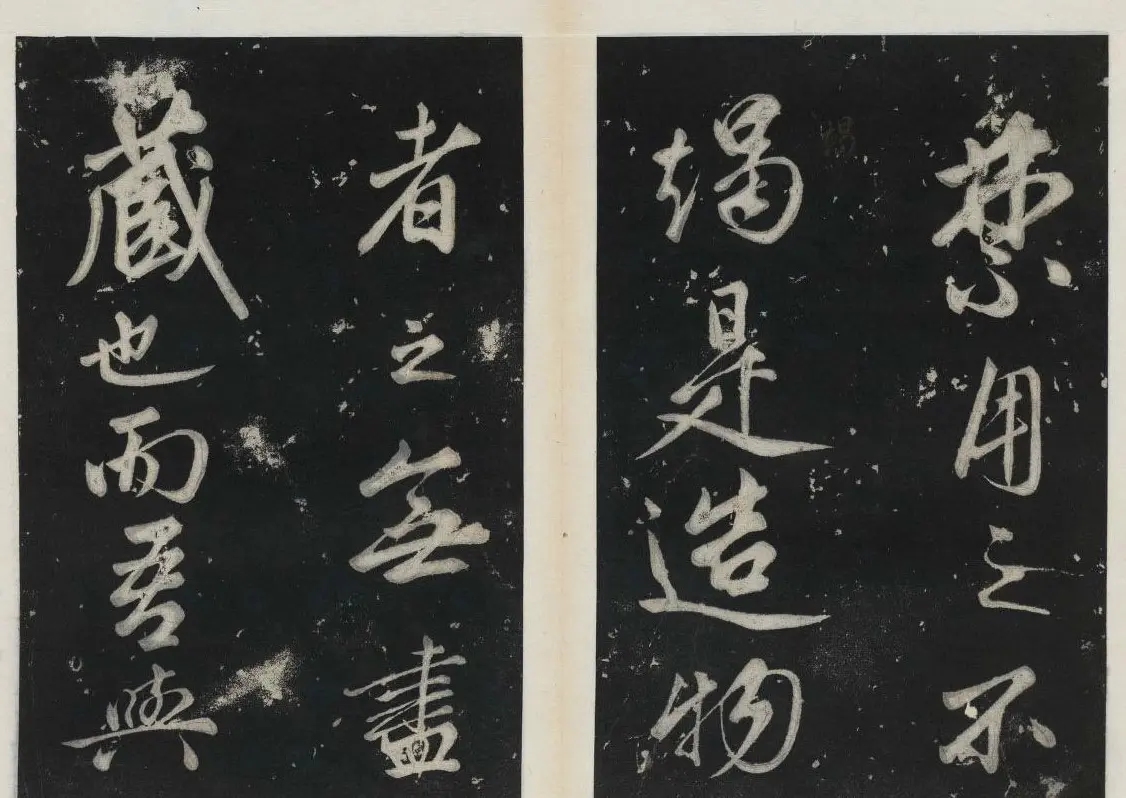 禁用之不
竭是造物
者之無盡
藏也而吾與